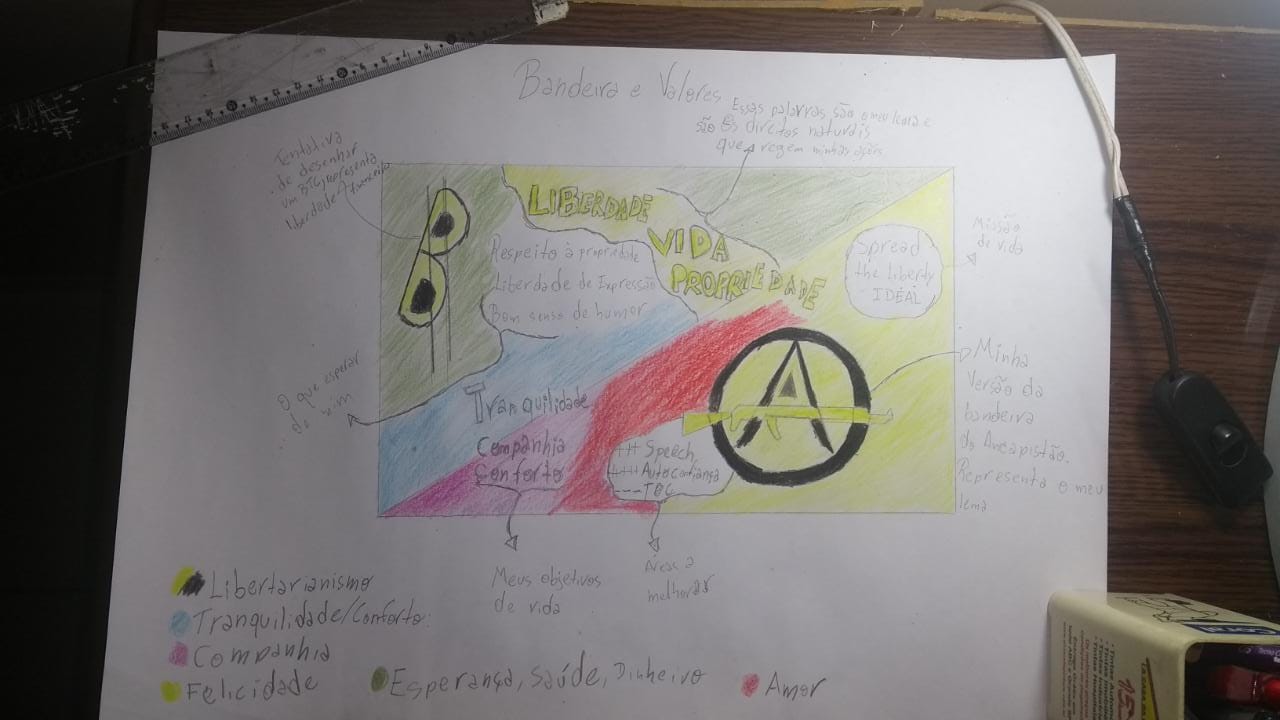 Bandeira e Valores
Essas palavras são o meu lema e
são os direitos naturais
que regem minhas ações
Tentativa
de desenhar
um BTC, representa
liberdade financeira
LIBERDADE
VIDA
PROPRIEDADE
Respeito à propriedade
Liberdade de Expressão
Bom senso de humor
Spread
the liberty
IDEAL
Missão
de vida
O que esperar
de mim
Minha
Versão da
bandeira
do Ancapistão.
Representa o meu
lema
A
Tranquilidade
Companhia
Conforto
+++ Speech
+++ Autoconfiança
--- TOC
Meus objetivos
de vida
Áreas a
melhorar
Libertarianismo
Tranquilidade/Conforto
Companhia
Felicidade
Esperança, Saúde, Dinheiro
Amor
Coral